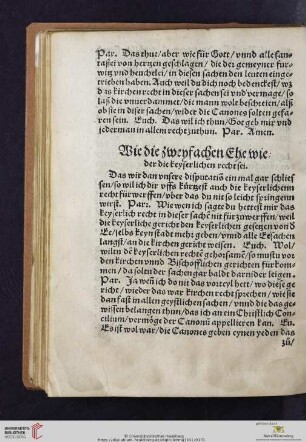 Par. Das thue/aber wie für Gott/vnnd alle fan-
tasei von hertzen geschlagen/die der gemeyner fur-
witz vnd heuchelei/in diesen sachen den leuten einge-
triben haben. Auch weil du dich noch bedenckest/wz
das kirchen recht in dieser sachen sei vnd vermage/so
laß die vnuerdammet/die mann wolt beschreien/als
ob sie in diser sachen/wider die Canones solten gefa-
ren sein. Euch. Das wil ich thun/Got geb mir vnd
jederman in allem recht zuthun. Par. Amen.
Wie die zweyfachen Ehe wie-
der die keyserlichen recht sei.
Das wir dan vnsere disputatiõ ein mal gar schlies
sen/so wil ich dir vffs kürtzest auch die keyserlichenn
recht fürwerffen/vber das du nit so leicht springenn
wirst. Par. Wie wenn ich sagte du hettest mir das
keyserlich recht in dieser sache nit fürzuwerffen/weil
die keyserliche gericht den keyserlichen gesetzen vonn
Ee/selbs keyn stadt mehr geben/vnnd alle Eesachen
langst/an die kirchen gericht weisen. Euch. Wol/
wilen die keyserlichen recht gehoßamen/so mustu vor
den kirchen vnnd Bischofflichen gerichten fürkom-
men/da solten der sachen gar bald darnider leigen.
Par. Ja wen ich do nit das vorteyl hett/wo diese ge
richt/wieder das war kirchen recht sprechen/wie sie
dan fast in allen geystlichen sachen/vnnd die das ge-
wissen belangen thun/das ich an ein Christlich Con-
cilium/vermöge der Canonũ appellieren kan. Eu.
Es ist wol war/die Canones geben eynen yeden das
zů/
UNIVERSITÄTS-
BIBLIOTHEK
HEIDELBERG
© Universitätsbibliothek Heidelberg